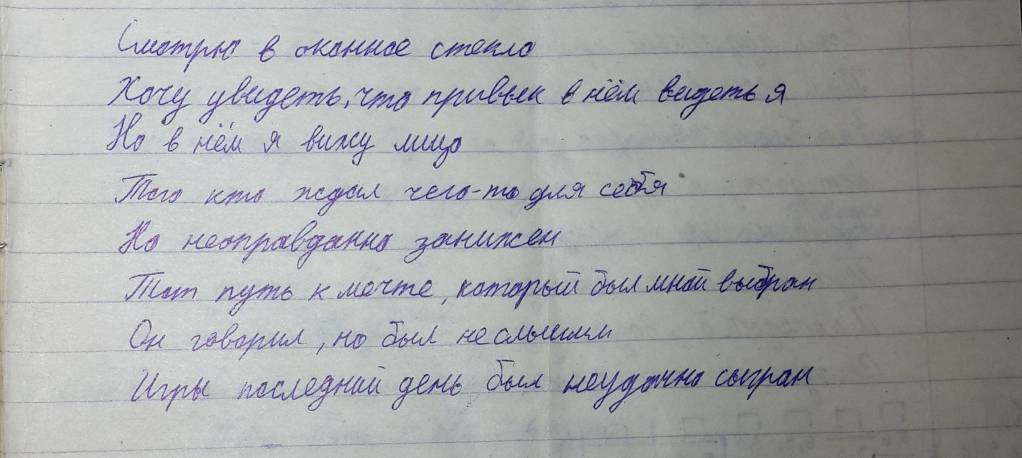 Смотрю в оконное стекло
Хочу увидеть, что привык в нём видеть я
Но в нём я вижу лицо
Того кто ждал чего-то для себя
Но неоправданно занижен
Тот путь к мечте, который был мной выбран
Он говорил, но был не слышим
Игры последний день был неудачно сыгран